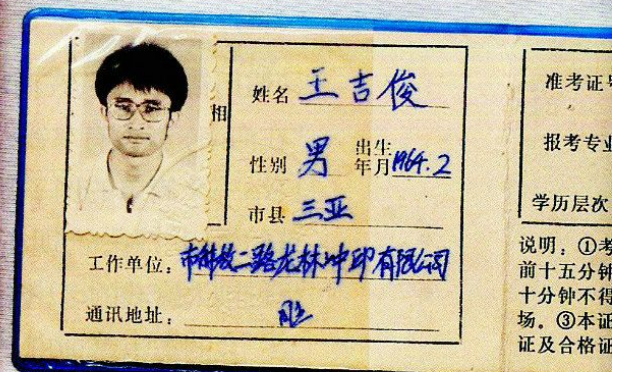 相
姓名 王吉俊
性别 男 出生年月 1964.2
市县 三亚
工作单位：市解放二路龙林冲印有限公司
通讯地址：同上
准考证号
报考专业
学历层次
说明：①考
前十五分钟
十分钟不得
场。③本证
证及合格证